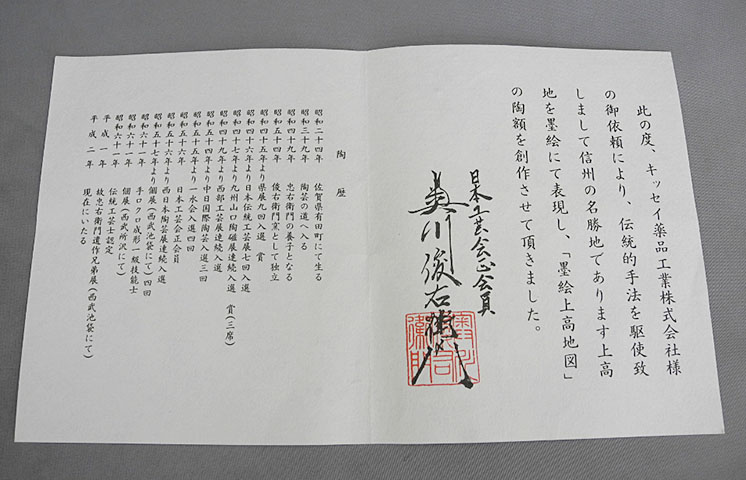 此の度、キッセイ薬品工業株式会社様
の御依頼により、伝統的手法を駆使致
しまして信州の名勝地であります上高
地を墨絵にて表現し、「墨絵上高地図」
の陶額を創作させて頂きました。
日本工芸会正会員
奥川俊右衛門
陶歴
昭和二十四年 佐賀県有田町にて生る
昭和三十九年 陶芸の道へ入る
昭和四十九年 忠右衛門の養子となる
昭和五十四年 俊右衛門窯として独立
昭和四十五年より県展九回入選 賞
昭和四十六年より日本伝統工芸展七回入選
昭和四十七年より九州山口陶磁展連続入選 賞(三席)
昭和四十九年より西部工芸展連続入選
昭和五十四年より中日国際陶芸入選三回
昭和五十五年より一水会入選四回
昭和五十六年 日本工芸会正会員
昭和五十六年より西日本陶芸展連続入選
昭和五十七年より個展(西武池袋にて)四回
昭和六十一年 手ロクロ成形一級技能士
昭和六十一年 個展(西武所沢にて)
昭和六十一年 伝統工芸士認定
平成一年 故忠右衛門遺作兄弟展(西武池袋にて)
平成二年 現在にいたる